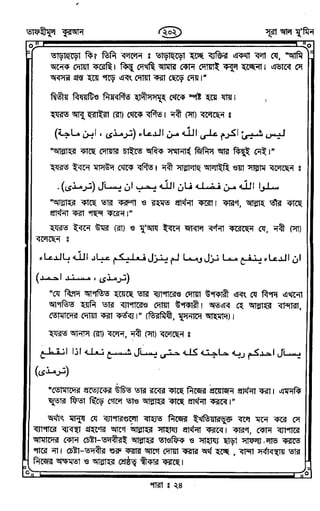 তাফহীমুল কুরআন
২০২
সূরা আল মু'মিন
তাড়াহুড়ো কি? তিনি বললেন : তাড়াহুড়ো হচ্ছে ব্যক্তির একথা বলা যে, "আমি
অনেক দোয়া করেছি। কিন্তু দেখছি আমার কোন দোয়াই কবুল হচ্ছেনা। এভাবে সে
অবসন্ন গ্রস্ত হয়ে পড়ে এবং দোয়া করা ছেড়ে দেয়।"
দ্বিতীয় বিষয়টিও নিম্নবর্ণিত হাদীসসমূহ থেকে স্পষ্ট হয়ে যায়।
হযরত আবু হুরাইরা (রা) থেকে বর্ণিত। নবী (সা) বলেছেন :
ليس شيئ اكرم على الله من الدعاء (ترمذى ، ابن ماجة)
"আল্লাহর কাছে দোয়ার চাইতে অধিক সম্মানার্হ জিনিস আর কিছুই নেই।"
হযরত ইবনে মাসউদ থেকে বর্ণিত। নবী সাল্লাল্লাহু আলাইহি ওয়া সাল্লাম বলেছেন :
سلوا الله من فضله فان الله يحب ان يسأل (ترمذى).
"আল্লাহর কাছে তার করুণা ও রহমত প্রার্থনা করো। কারণ, আল্লাহ তাঁর কাছে
প্রার্থনা করা পছন্দ করেন।"
হযরত ইবনে উমর (রা) ও মু'আয ইবনে জাবাল বর্ণনা করেছেন যে, নবী (সা)
বলেছেন :
ان الدعاء ينفع مما نزل ومما لم ينزل فعليكم عباد الله بالدعاء
(ترمذى ، مسند احمد)
"যে বিপদ আপতিত হয়েছে তার ব্যাপারেও দোয়া উপকারী এবং যে বিপদ এখনো
আপতিত হয়নি তার ব্যাপারেও দোয়া উপকারী। অতএব হে আল্লাহর বান্দারা,
তোমাদের দোয়া করা কর্তব্য।" (তিরমিযী, মুসনাদে আহমাদ)।
হযরত আনাস (রা) বলেন, নবী (সা) বলেছেন :
يسأل احدكم ربه حاجته كله حتى يسأل شسع نعله اذا انقطع
(ترمذى)
"তোমাদের প্রত্যেকের উচিত তার রবের কাছে নিজের প্রয়োজন প্রার্থনা করা। এমনকি
জুতার ফিতা ছিঁড়ে গেলে তাও আল্লাহর কাছে প্রার্থনা করবে।"
অর্থাৎ মানুষ যে ব্যাপারগুলো বাহ্যত নিজের ইখতিয়ারভুক্ত বলে মনে করে সে
ব্যাপারে ব্যবস্থা গ্রহণের আগে আল্লাহর সাহায্য প্রার্থনা করবে। কারণ, কোন ব্যাপারে
আমাদের কোন চেষ্টা-তদবীরই আল্লাহর তাওফিক ও সাহায্য ছাড়া সাফল্য লাভ করতে
পারে না। চেষ্টা-তদবীর শুরু করার আগে দোয়া করার অর্থ হচ্ছে, বান্দা সর্বাবস্থায় তার
নিজের অক্ষমতা ও আল্লাহর শ্রেষ্ঠত্ব স্বীকার করছে।
পারা : ২৪